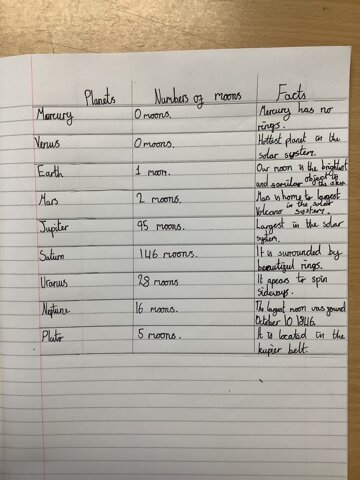 Planets Numbers of moons Facts
Mercury 0 moons. Mercury has no
rings.
Venus 0 moons. Hottest planet in the
solar system.
Earth 1 moon. Our moon is the brightest
and object in the
Mars 2 moons. Mas is home to largest
in the solar
Volcano system.
Jupiter 95 moons. Largest in the solar
system.
Saturn 146 moons. It is surrounded by
beautiful rings.
Uranus 28 moons It apears to spin
sideways.
Neptune 16 moons. The largest moon was
October 10 1846.
Pluto 5 moons. It is located in the
kupier belt.